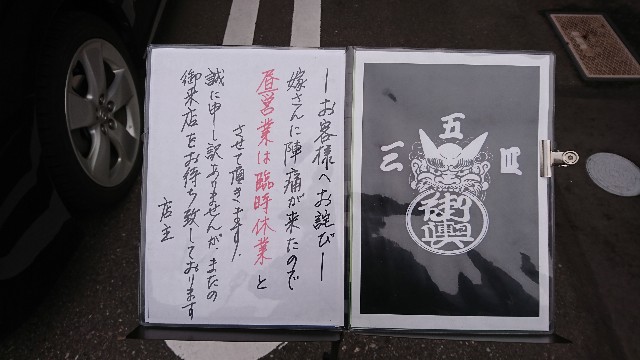 ーお客様へお詫びー
嫁さんに陣痛が来たので
昼営業は臨時休業と
させて頂きます!
誠に申し訳ありませんが、またの
御来店をお待ち致しております
店主
五
三
四
御輿